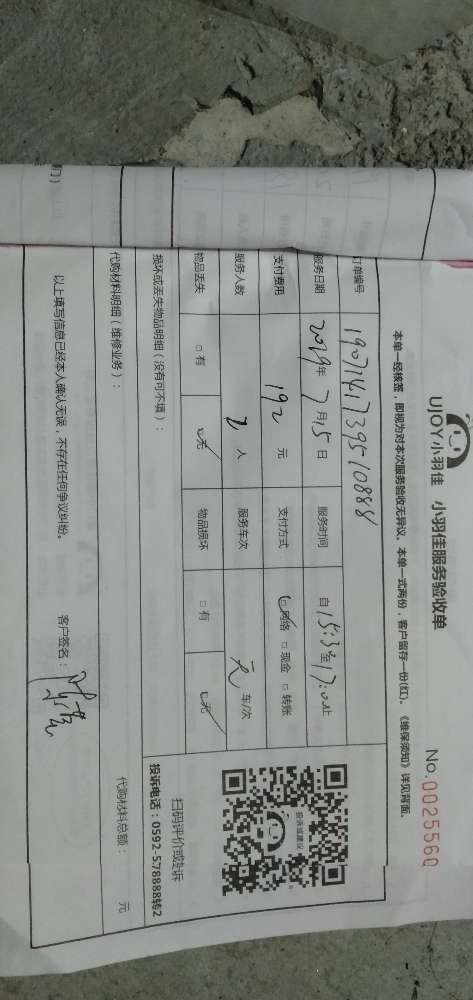 UJOY小羽佳 小羽佳服务验收单
No. 0025560
本单一经核签，即视为对本次服务验收无异议。本单一式两份，客户留存一份(红)。《维保须知》详见背面。
订单编号 190714173951088
服务日期 2019年7月15日 服务时间 自15:3至17:0止
支付费用 192 元 支付方式 网络 现金 转账
服务人数 2 人 服务车次 无 车/次
物品丢失 有 无 物品损坏 有 无
损坏或丢失物品明细（没有可不填）：
代购材料明细（维修业务）：
代购材料总额： 元
投诉或建议
扫码评价或投诉
投诉电话：0592-578888转2
以上填写信息已经本人确认无误，不存在任何争议纠纷。
客户签名：
门）